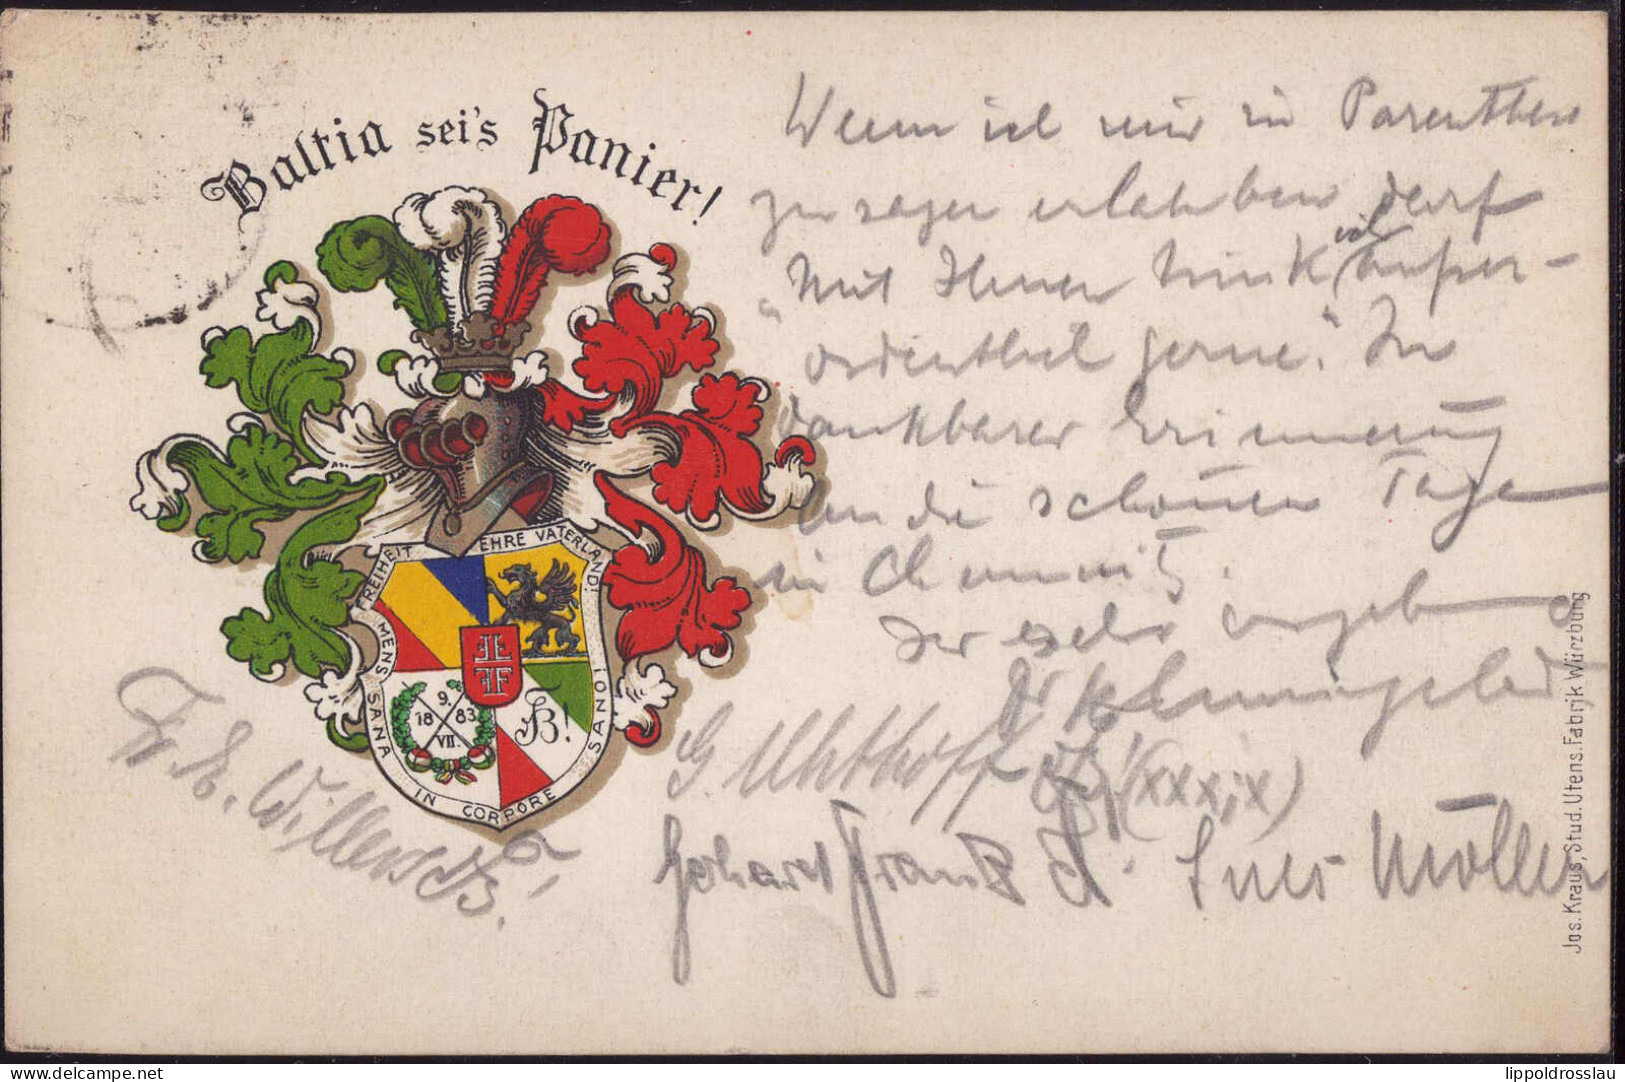 Baltia sei's Panier!
Wenn ich mir in Parenthese
zu sagen erlauben darf
"Mit Ihnen trink ich außer-
ordentlich gerne". In
dankbarer Erinnerung
an die schönen Tage
in Chemnitz.
Der sehr ergeb
FREIHEIT EHRE VATERLAND!
MENS SANA IN CORPORE SANO!
FF
FF
9.
18 83
VII.
B!
Fr. W. Willers
G. Uhthoff (XXX, X)
Gerhard Frank
Möller
Jos. Kraus, Stud. Utens. Fabrik Würzburg
lippoldrosslau
delcampe.net